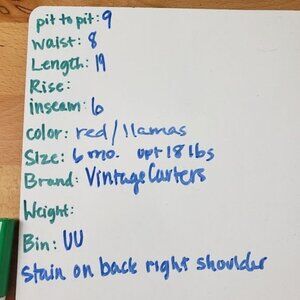 pit to pit: 9
waist: 8
Length: 19
Rise:
inseam: 6
color: red/llamas
Size: 6 mo. upt 18 lbs
Brand: Vintage Carters
Weight:
Bin: UU
Stain on back right shoulder